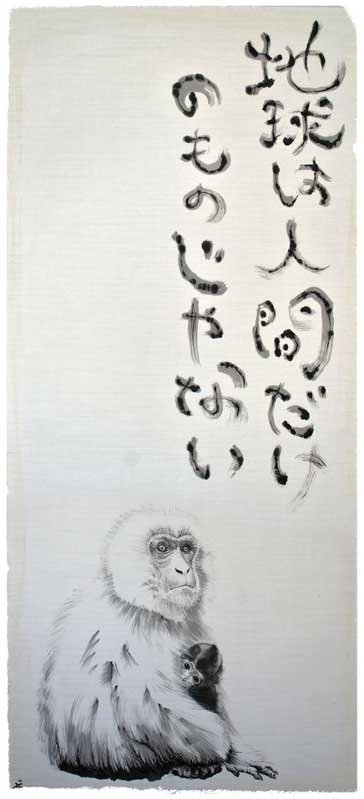 地球は人間だけ
のものじゃない